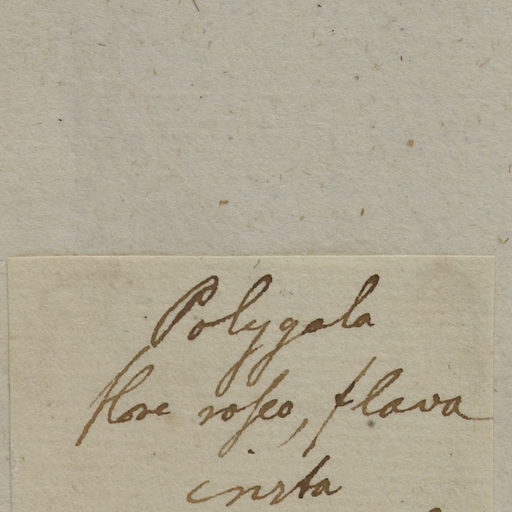 Polygala
flore roseo, flava